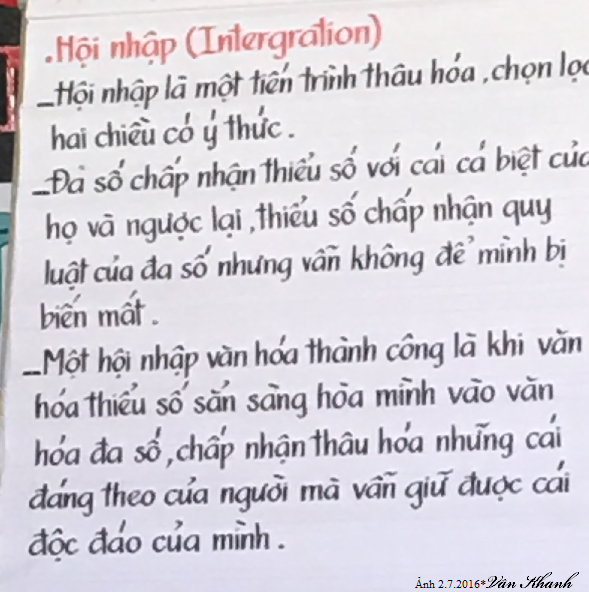 .Hội nhập (Intergration)
_Hội nhập là một tiến trình thâu hóa , chọn lọc
hai chiều có ý thức .
_Đa số chấp nhận thiểu số với cái cá biệt của
họ và ngược lại , thiểu số chấp nhận quy
luật của đa số nhưng vẫn không để mình bị
biến mất .
_Một hội nhập văn hóa thành công là khi văn
hóa thiểu số sẵn sàng hòa mình vào văn
hóa đa số , chấp nhận thâu hóa những cái
đáng theo của người mà vẫn giữ được cái
độc đáo của mình .
Ảnh 2.7.2016*Văn Khanh